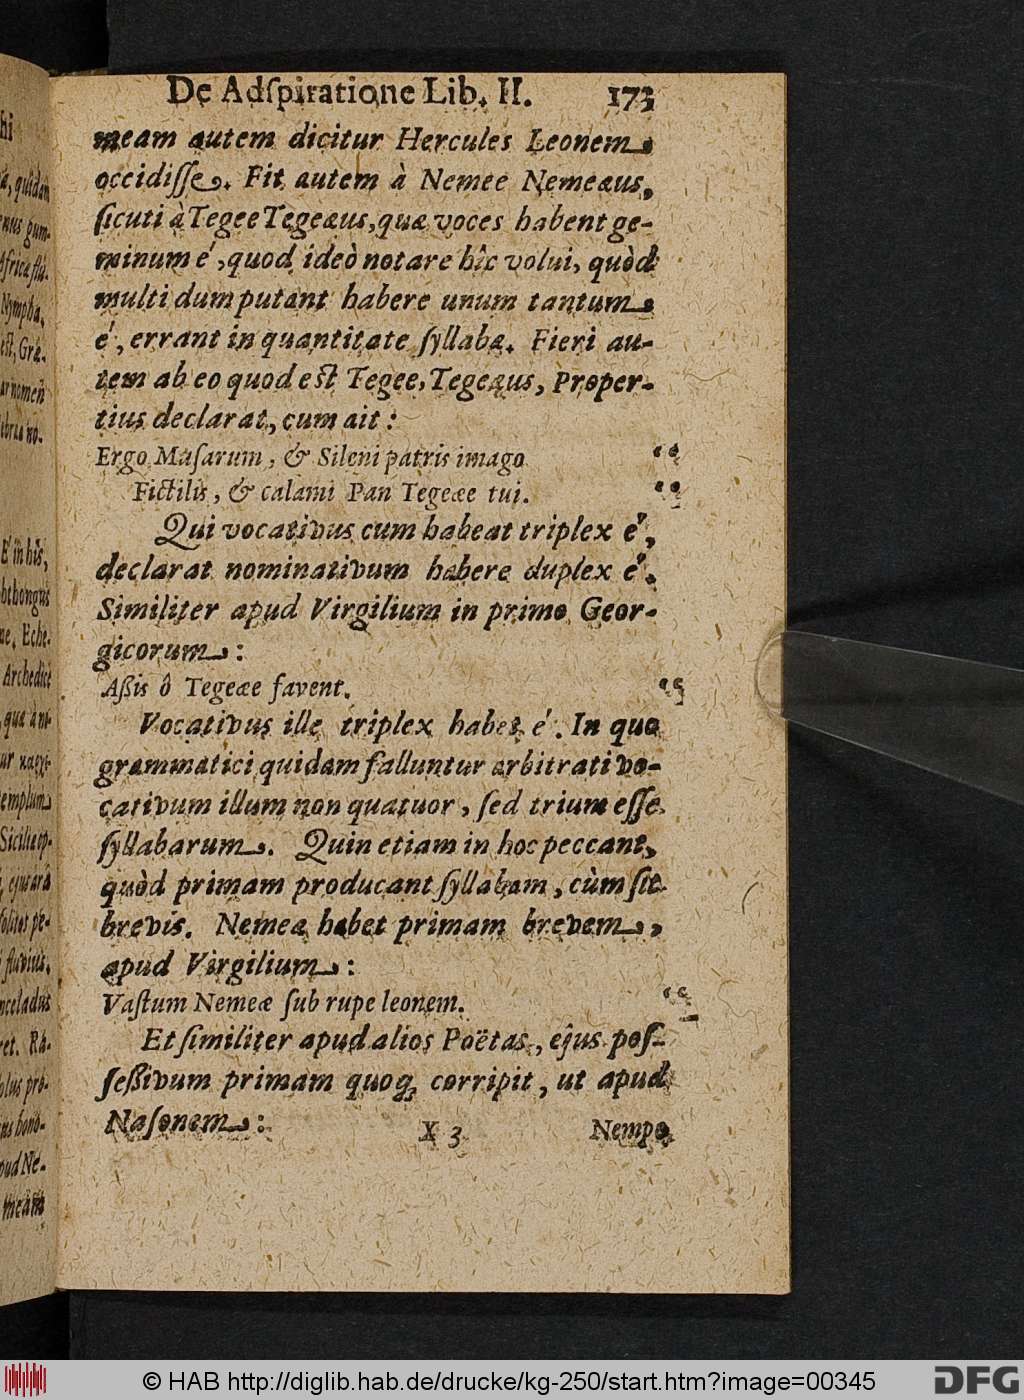 De Adſpiratione Lib. II. 173
meam autem dicitur Hercules Leonem
occidiſſe. Fit autem à Nemee Nemeæus,
ſicuti à Tegee Tegeæus, quæ voces habent ge-
minum é, quod ideò notare hîc volui, quòd
multi dum putant habere unum tantum
é, errant in quantitate ſyllabæ. Fieri au-
tem ab eo quod eſt Tegee, Tegeæus, Proper-
tius declarat, cum ait:
Ergo Muſarum, & Sileni patris imago “
Fictilis, & calami Pan Tegeæe tui. “
Qui vocativus cum habeat triplex é,
declarat nominativum habere duplex é.
Similiter apud Virgilium in primo Geor-
gicorum:
Aßis ô Tegeæe favent. “
Vocativus ille triplex habet é. In quo
grammatici quidam falluntur arbitrati vo-
cativum illum non quatuor, ſed trium eſſe
ſyllabarum. Quin etiam in hoc peccant,
quòd primam producant ſyllabam, cùm ſit
brevis. Nemea habet primam brevem,
apud Virgilium:
Vaſtum Nemeæ ſub rupe leonem. “
Et ſimiliter apud alios Poëtas, ejus poſ-
ſeßivum primam quoq; corripit, ut apud
Naſonem:
X 3 Nempe
© HAB http://diglib.hab.de/drucke/kg-250/start.htm?image=00345
DFG